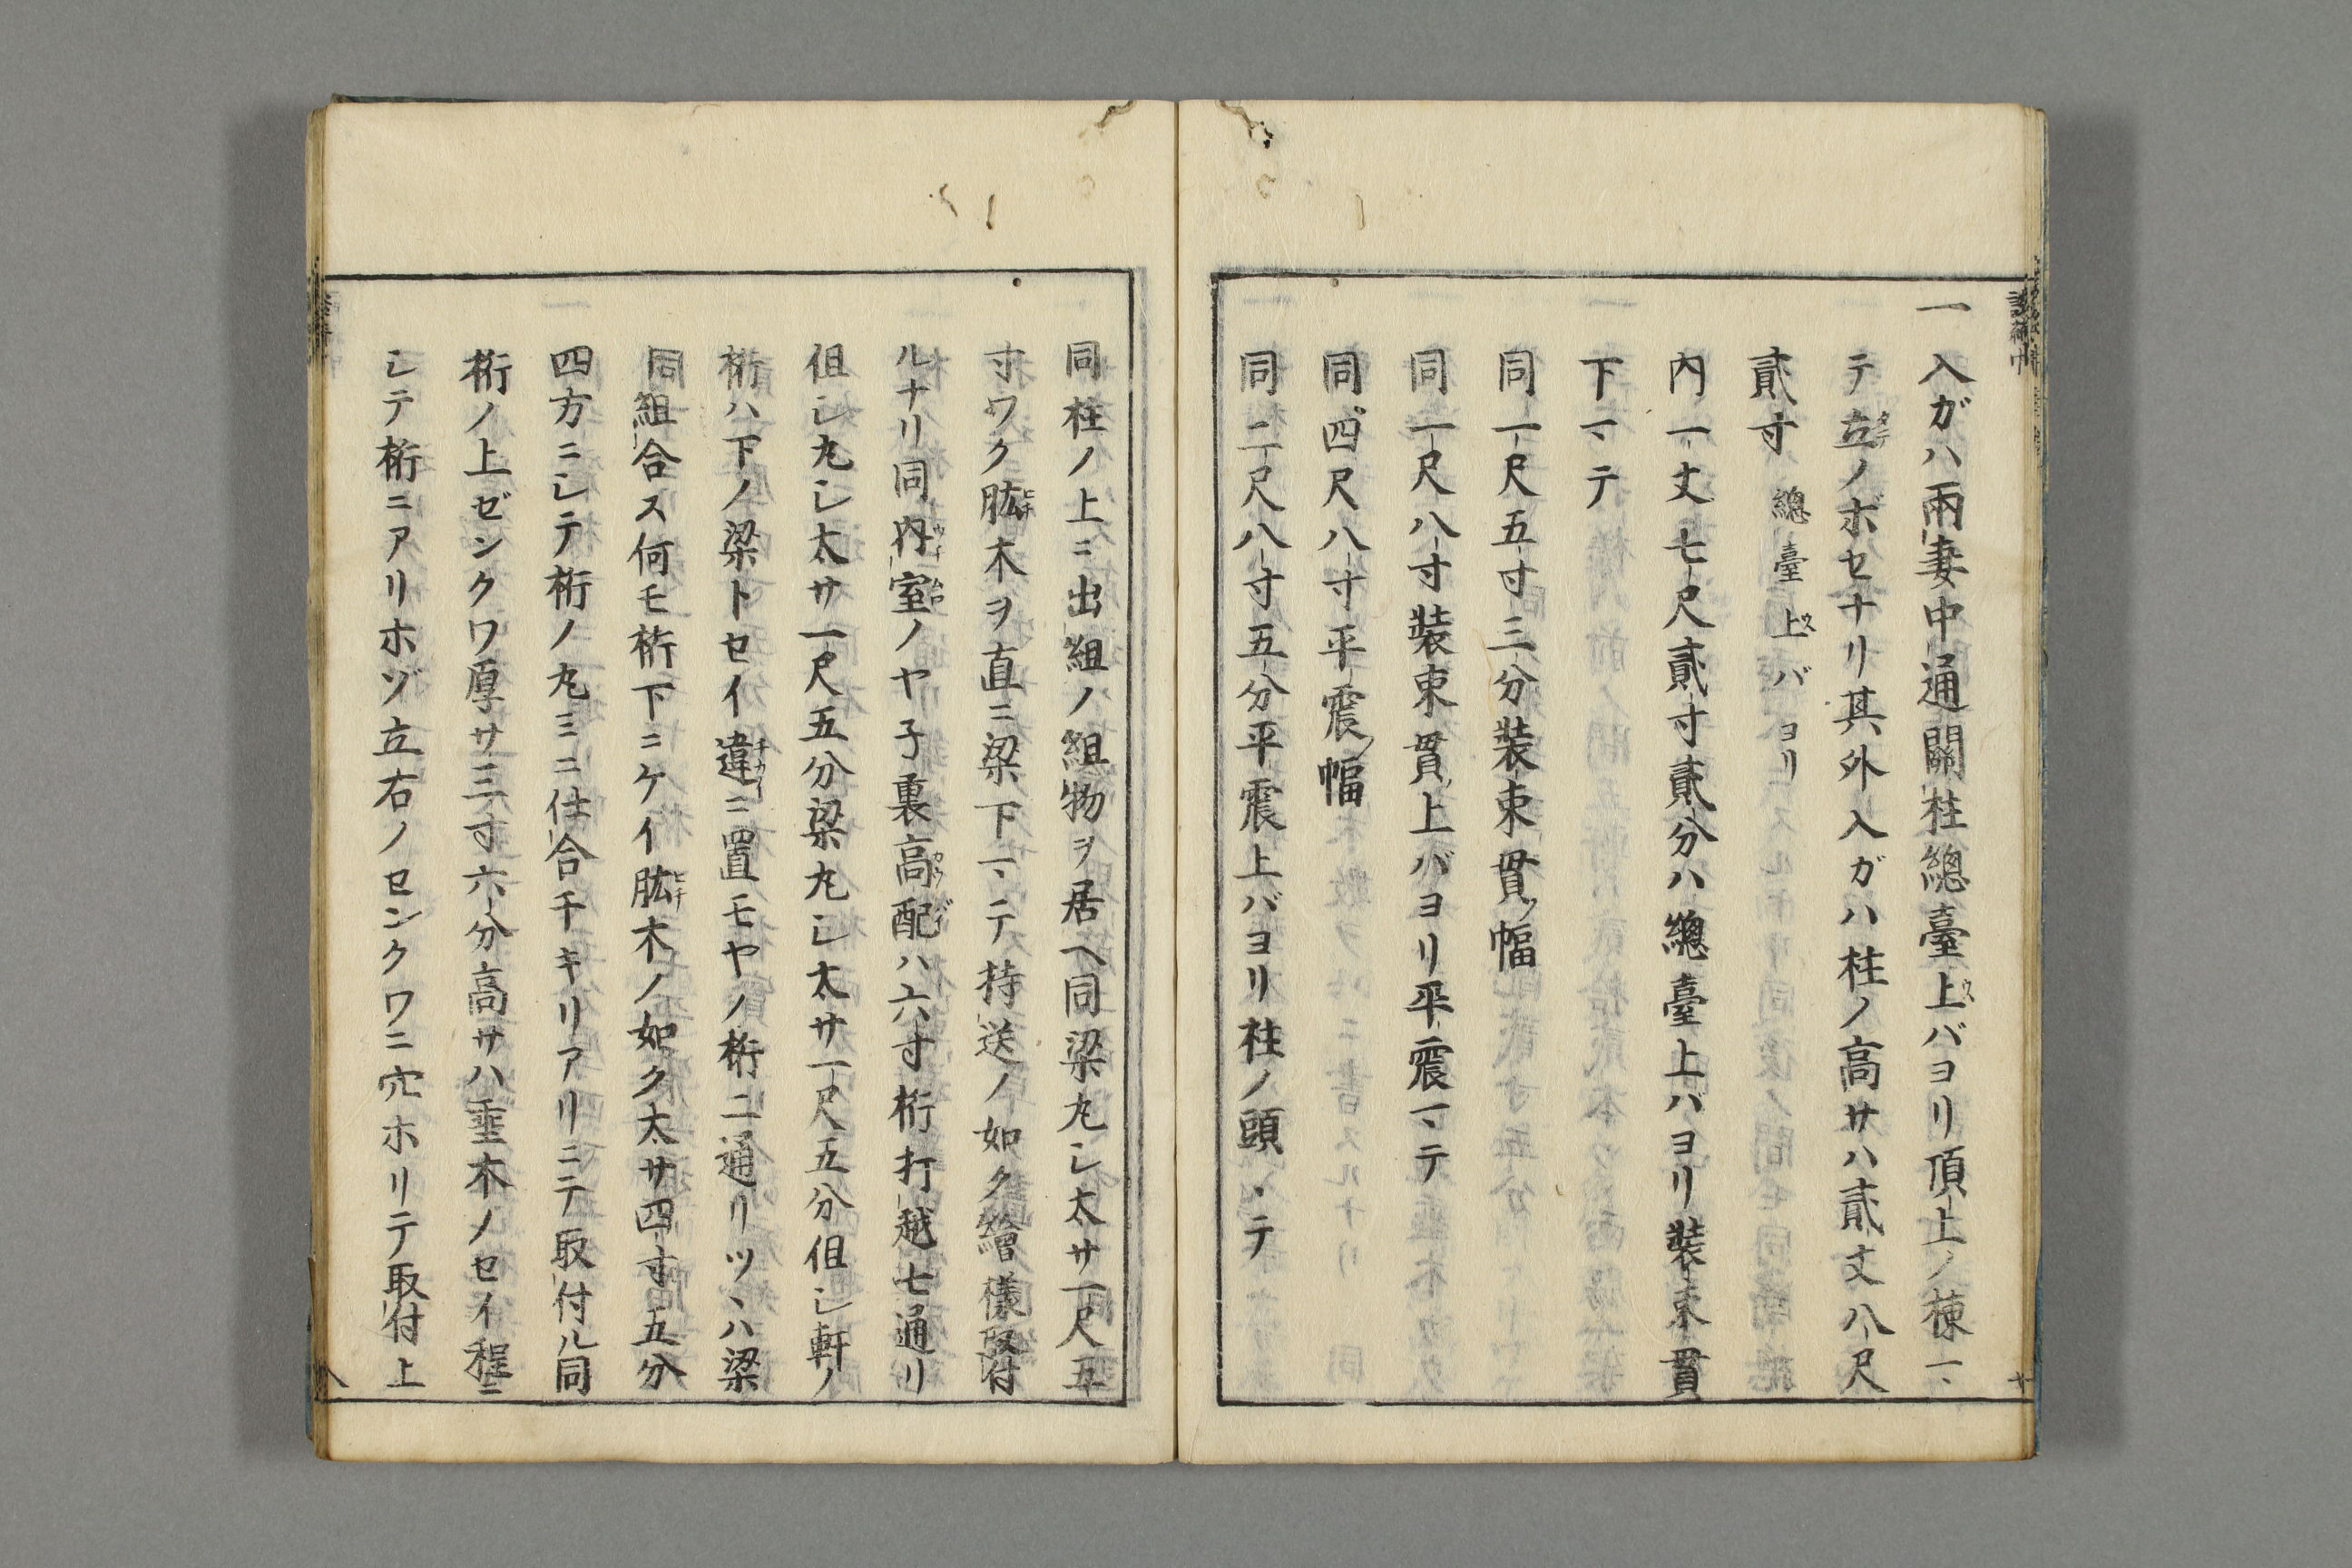 一入ガハ兩妻中通關柱總臺上バヨリ頂上ノ棟一、
テ立ノボセナリ其外入ガハ柱ノ高サハ貳丈八尺
貳寸總臺上バヨリ
内一丈七尺貳寸貳分ハ總臺上バヨリ裝束貫
下一、テ
同一尺五寸三分裝束貫ノ幅
同一尺八寸裝束貫ノ上バヨリ平震一、テ
同四尺八寸平震ノ幅
同二尺八寸五分平震上バヨリ柱ノ頭一、テ
同柱ノ上ニ出組ノ組物ヲ居ヘ同梁丸シ太サ一尺五
寸ワク肱木ヲ直ニ梁下一、テ持送ノ如ク繪樣取付
ルナリ同内室ノヤ子裏高配ハ六寸桁打越七通リ
但シ丸シ太サ一尺五分梁丸シ太サ一尺五分但シ軒ノ
桁ハ下ノ梁トセイ違ニ置モヤノ桁二通リツヽハ梁
同組合ス何モ桁下ニケイ肱木ノ如ク太サ四寸五分
四方ニシテ桁ノ丸ミニ仕合チキリアリニテ取付ル同
桁ノ上ゼンクワ厚サ三寸六分高サハ垂木ノセイ程ニ
シテ桁ニアリホゾ立右ノセンクワニ穴ホリテ取付上
八